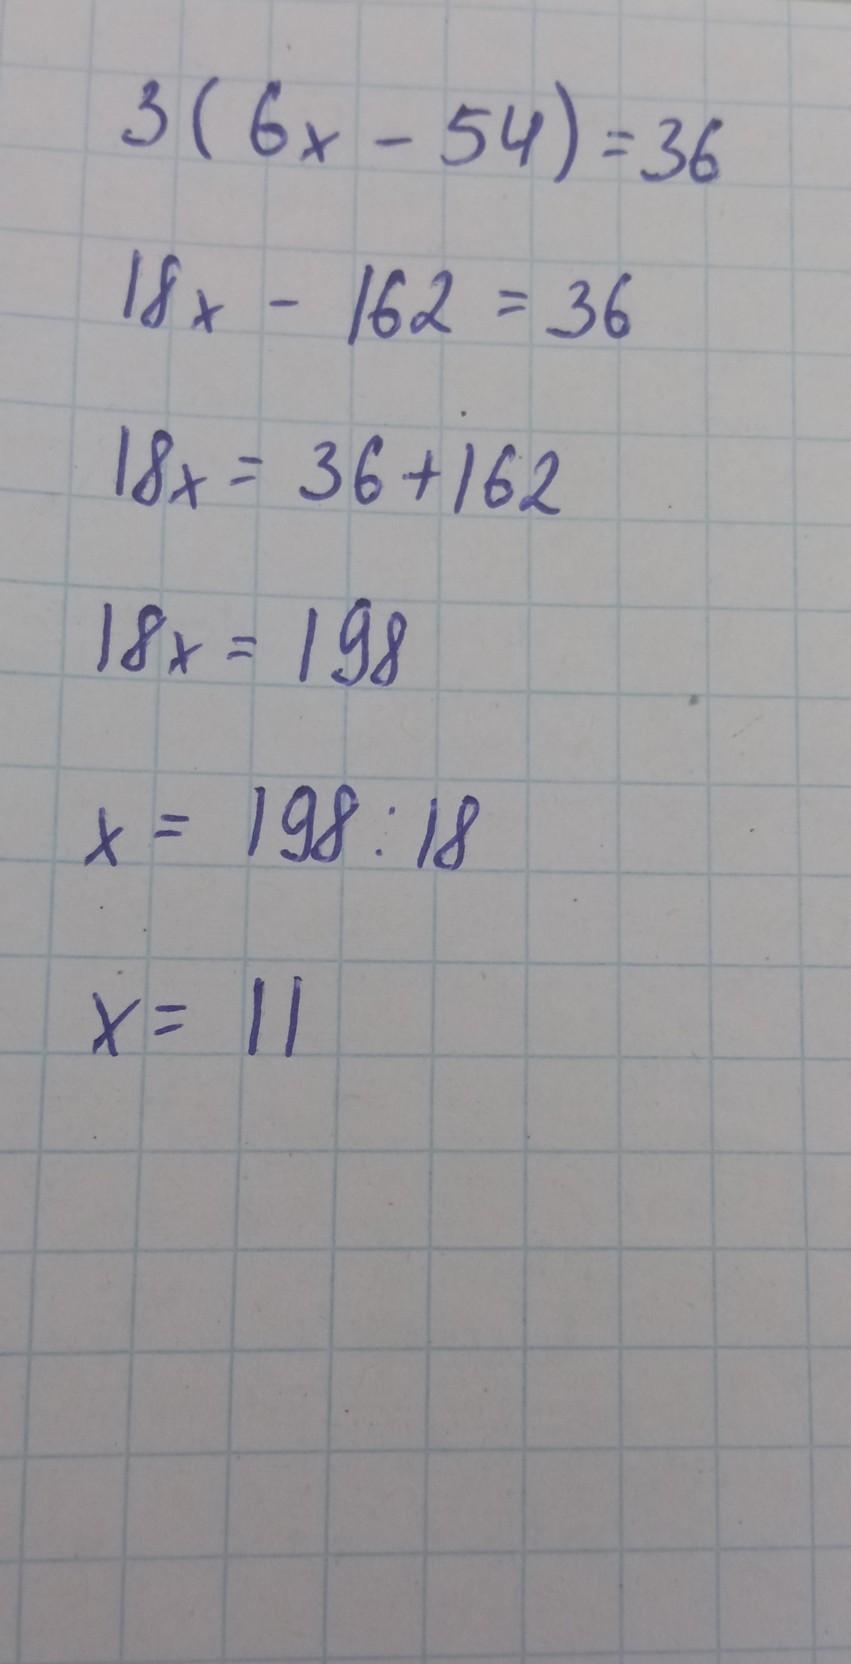 3(6x - 54) = 36
18x - 162 = 36
18x = 36+162
18x = 198
x = 198:18
x = 11